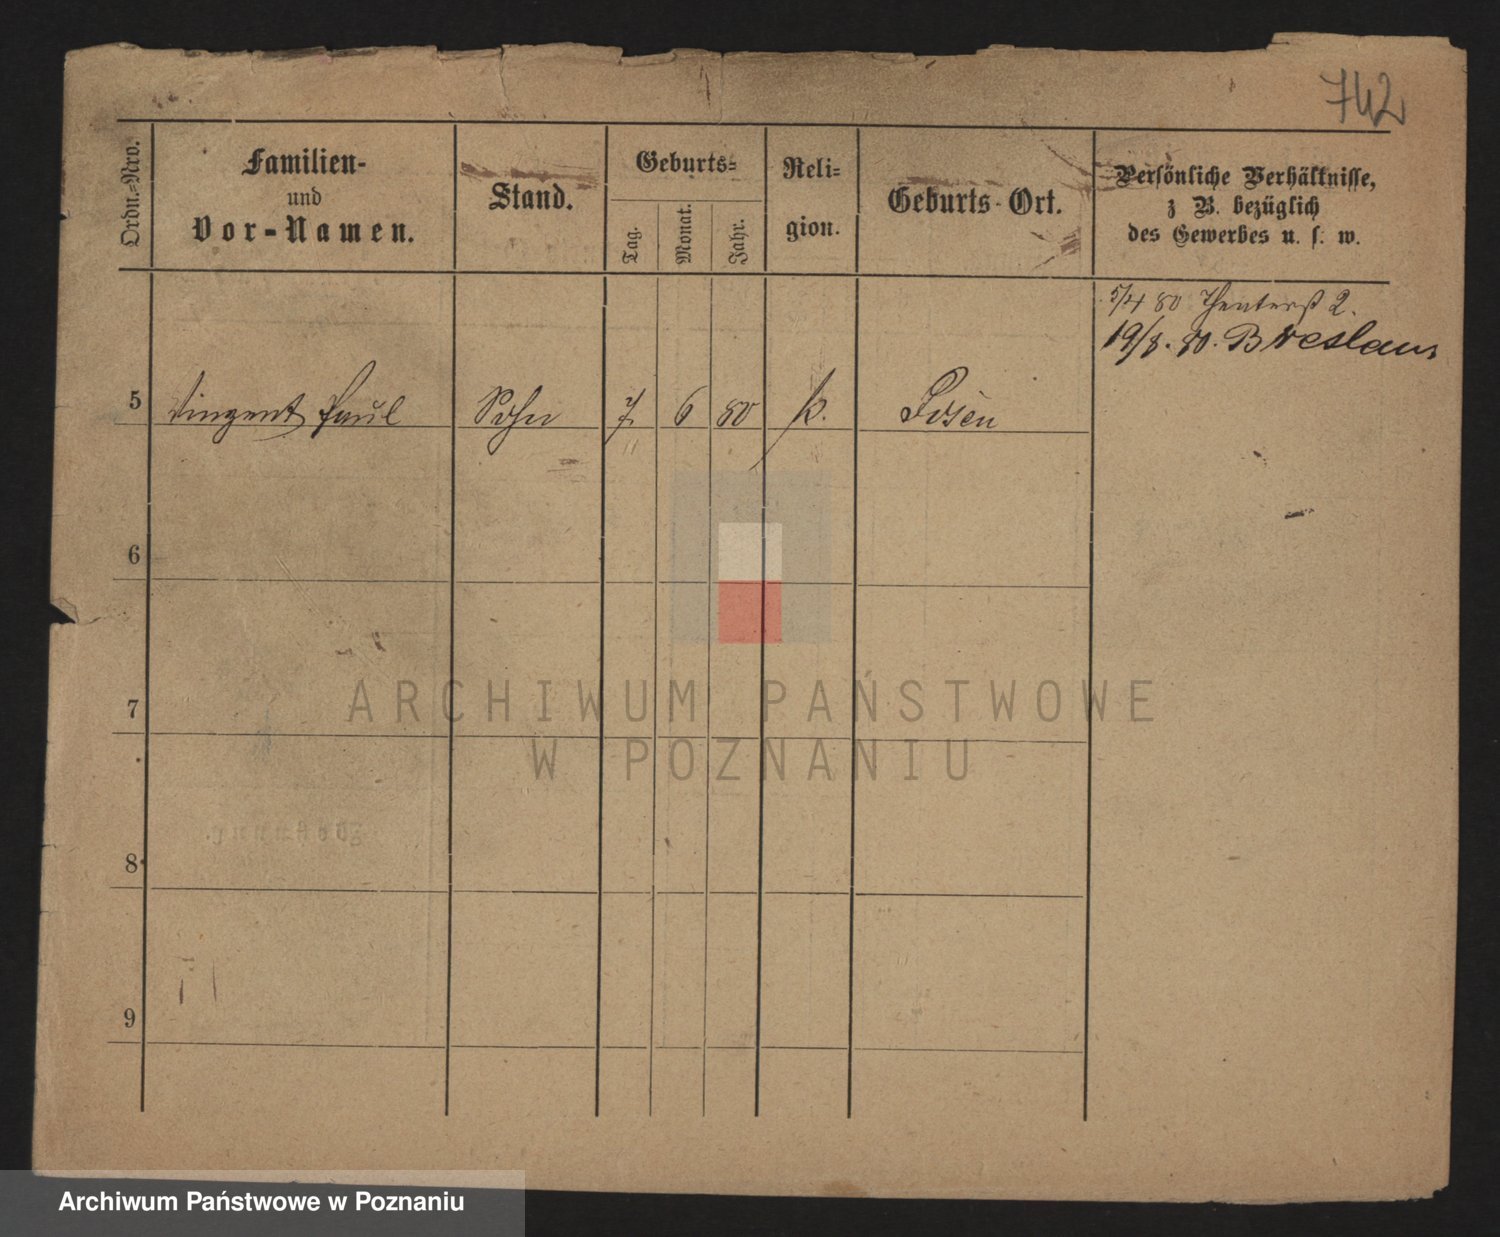 742
Ordn.-Nro.
Familien-
und
Vor-Namen.
Stand.
Geburts-
Tag.
Monat.
Jahr.
Reli-
gion.
Geburts-Ort.
Persönliche Verhältnisse,
z B. bezüglich
des Gewerbes u. s. w.
5/4 80 Theaterst 2.
19/8. 80. Breslau
5 Vinzent Paul Sohn 7 6 80 k. Posen
6
7
8
9
ARCHIWUM PAŃSTWOWE
W POZNANIU
Archiwum Państwowe w Poznaniu